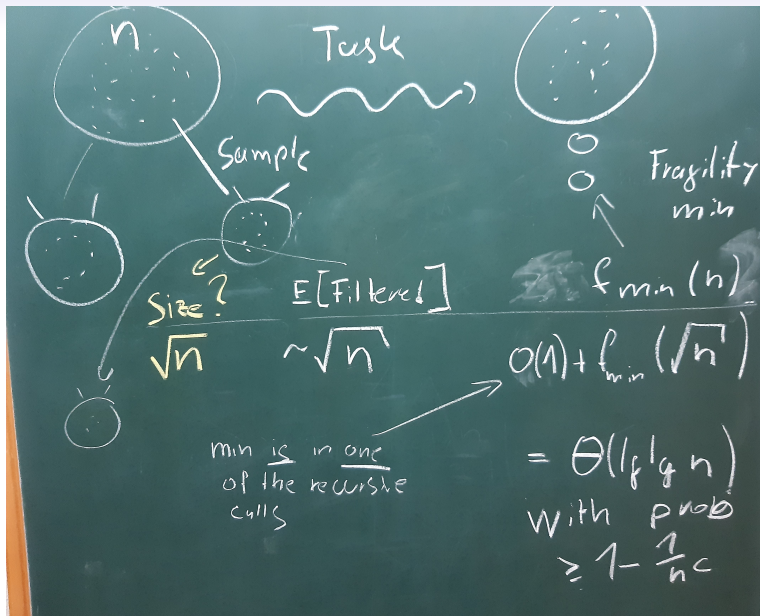 n
Task
Sample
Fragility
min
Size?
E[Filtered]
f min (n)
√n
~√n
O(1) + f min (√n)
min is in one
of the recursive
calls
= Θ(lg lg n)
with prob
≥ 1 - 1/n^c